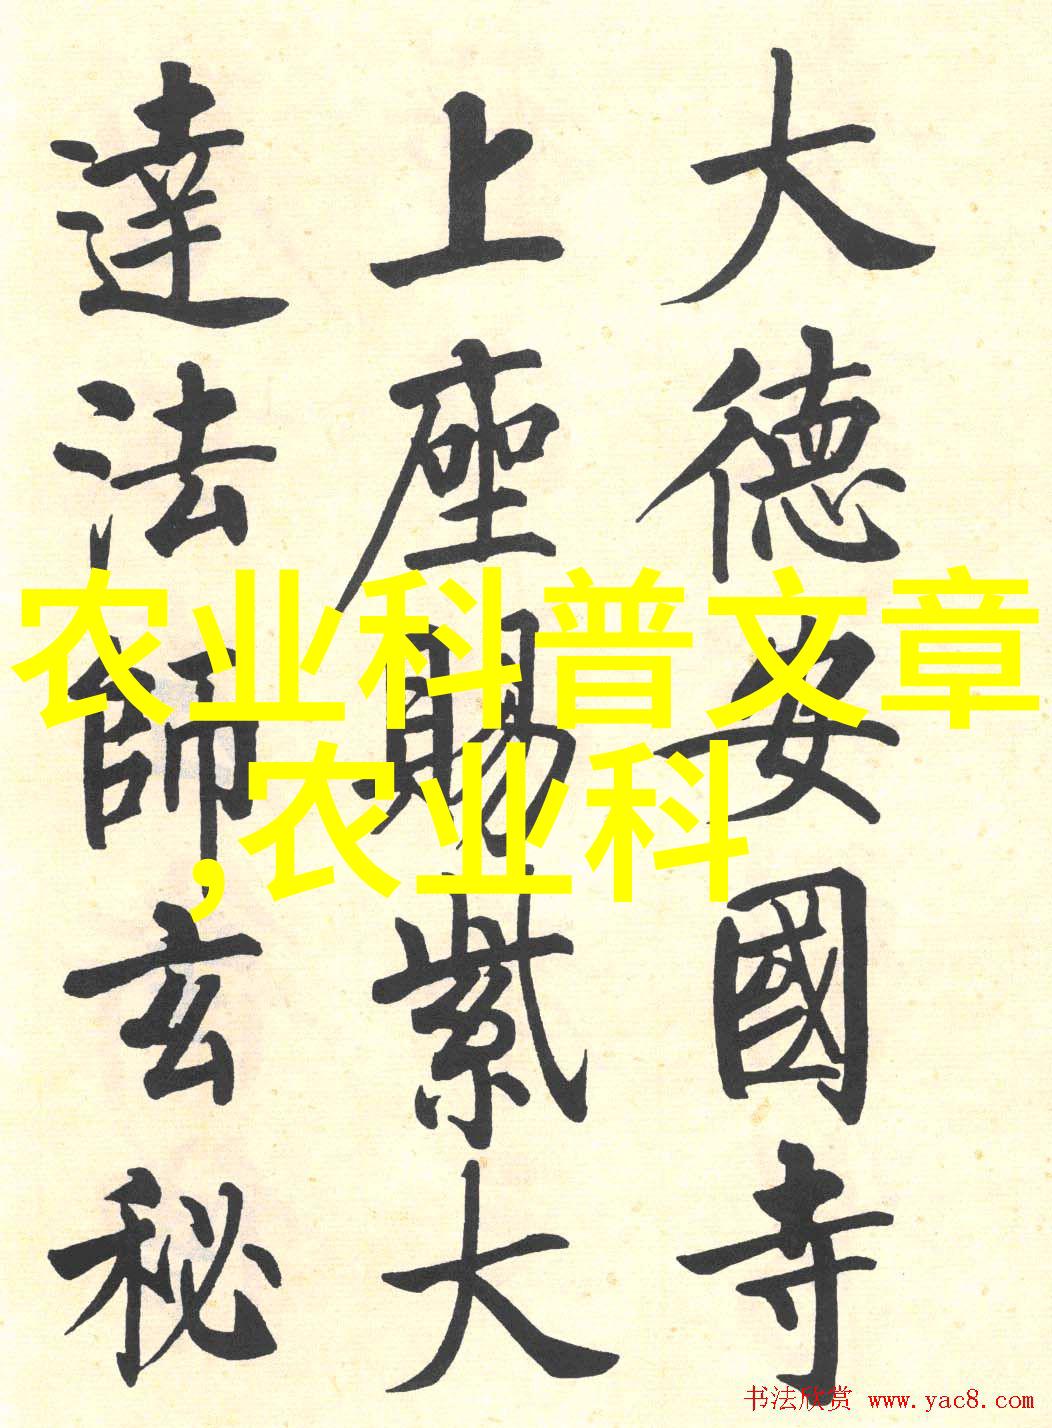 大德安國寺
上座賜紫大
達法師玄秘
农业科普文章
,农业科
书法欣赏 www.yac8.com